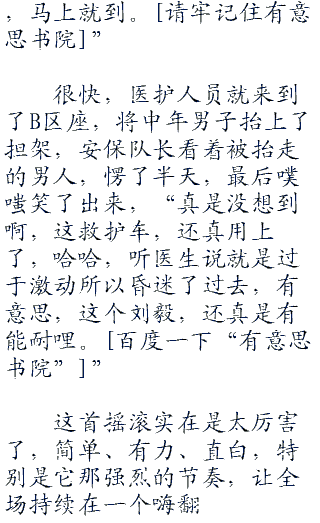 ，马上就到。[请牢记住有意
思书院]”
很快，医护人员就来到
了B区座，将中年男子抬上了
担架，安保队长看着被抬走
的男人，愣了半天，最后噗
嗤笑了出来，“真是没想到
啊，这救护车，还真用上
了，哈哈，听医生说就是过
于激动所以昏迷了过去，有
意思，这个刘毅，还真是有
能耐哩。[百度一下“有意思
书院”]”
这首摇滚实在是太厉害
了，简单、有力、直白，特
别是它那强烈的节奏，让全
场持续在一个嗨翻